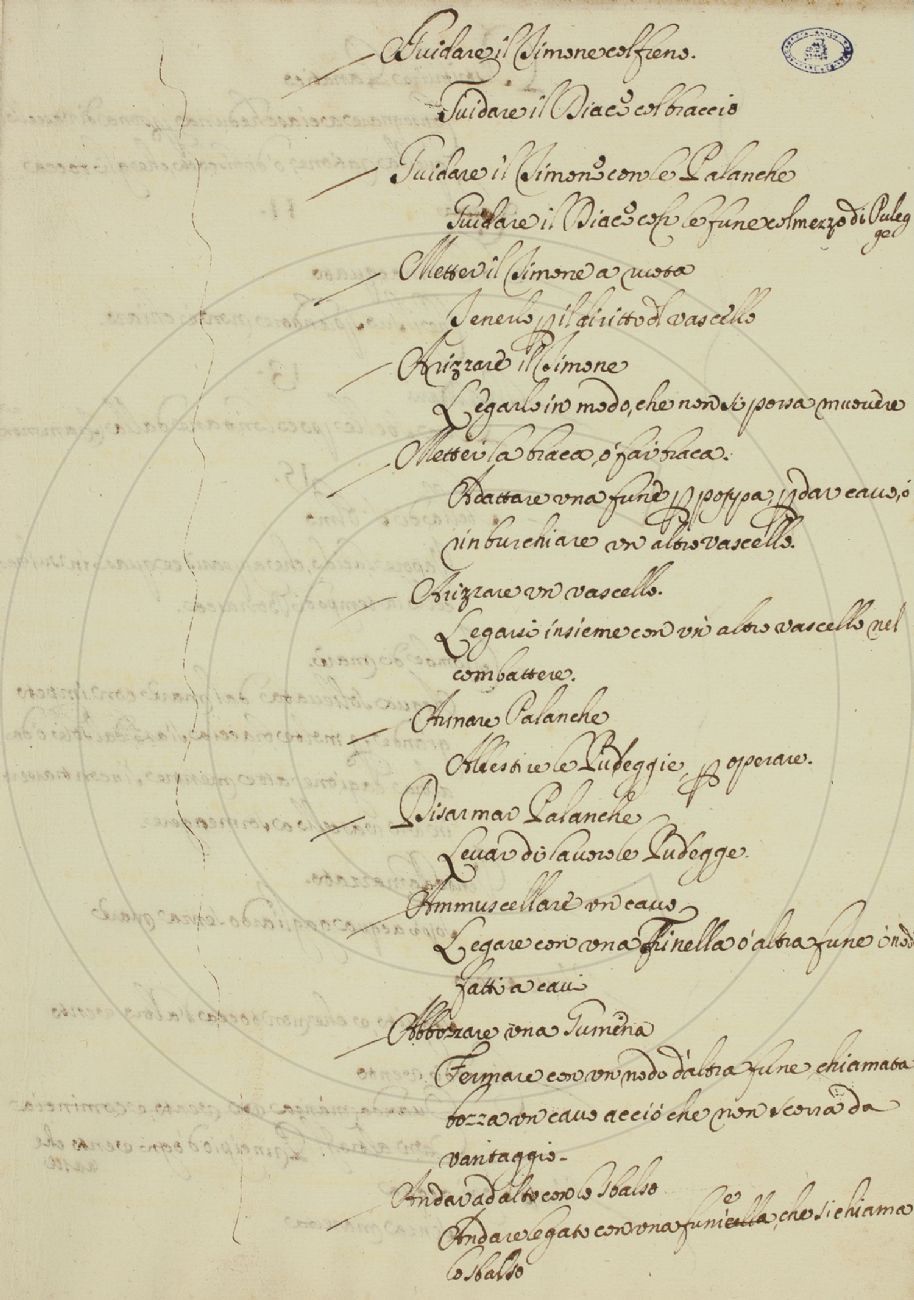 Guidare il Timone col freno.
Guidare il Diacº col braccio
Guidare il Timonº con le Palanche
Guidare il Diacº cō le fune col mezzo di Puleg
ge
Metter il Timone a ruota
Tenerlo p il diritto dl vascello
Arizzare il Timone
Legarlo in modo, che non si possa muovere
Metter la braca, ó far braca.
Adattare una fune p poppa p dar cavo, ó
rinburchiare un altro vascello.
Arizzare un vascello.
Legarsi insieme con un altro vascello nel
combattere.
Armare Palanche
Allestire le Puleggie, p operare.
Disarmar Palanche
Levar di lavoro le Pulegge.
Ammuscellare un cavo
Legare con una Trinella ó altra fune i nodi
fatti a cavi
Abbozzare una Gumena
Fermare con un nodo d'altra fune chiamata
bozza un cavo acció che non scorra da
vantaggio.
Andar ad alto con lo sbalso
Andare legato con una fune, che si chiama
lo sbalso